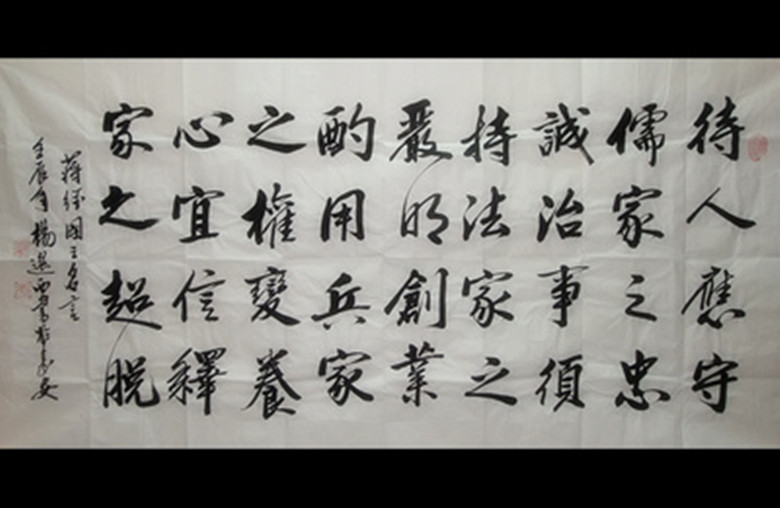 待人應守
儒家之忠
誠治事須
持法家之
嚴明創業
酌用兵家
之權變養
心宜信釋
家之超脱
蔣經國之名言
壬辰年楊